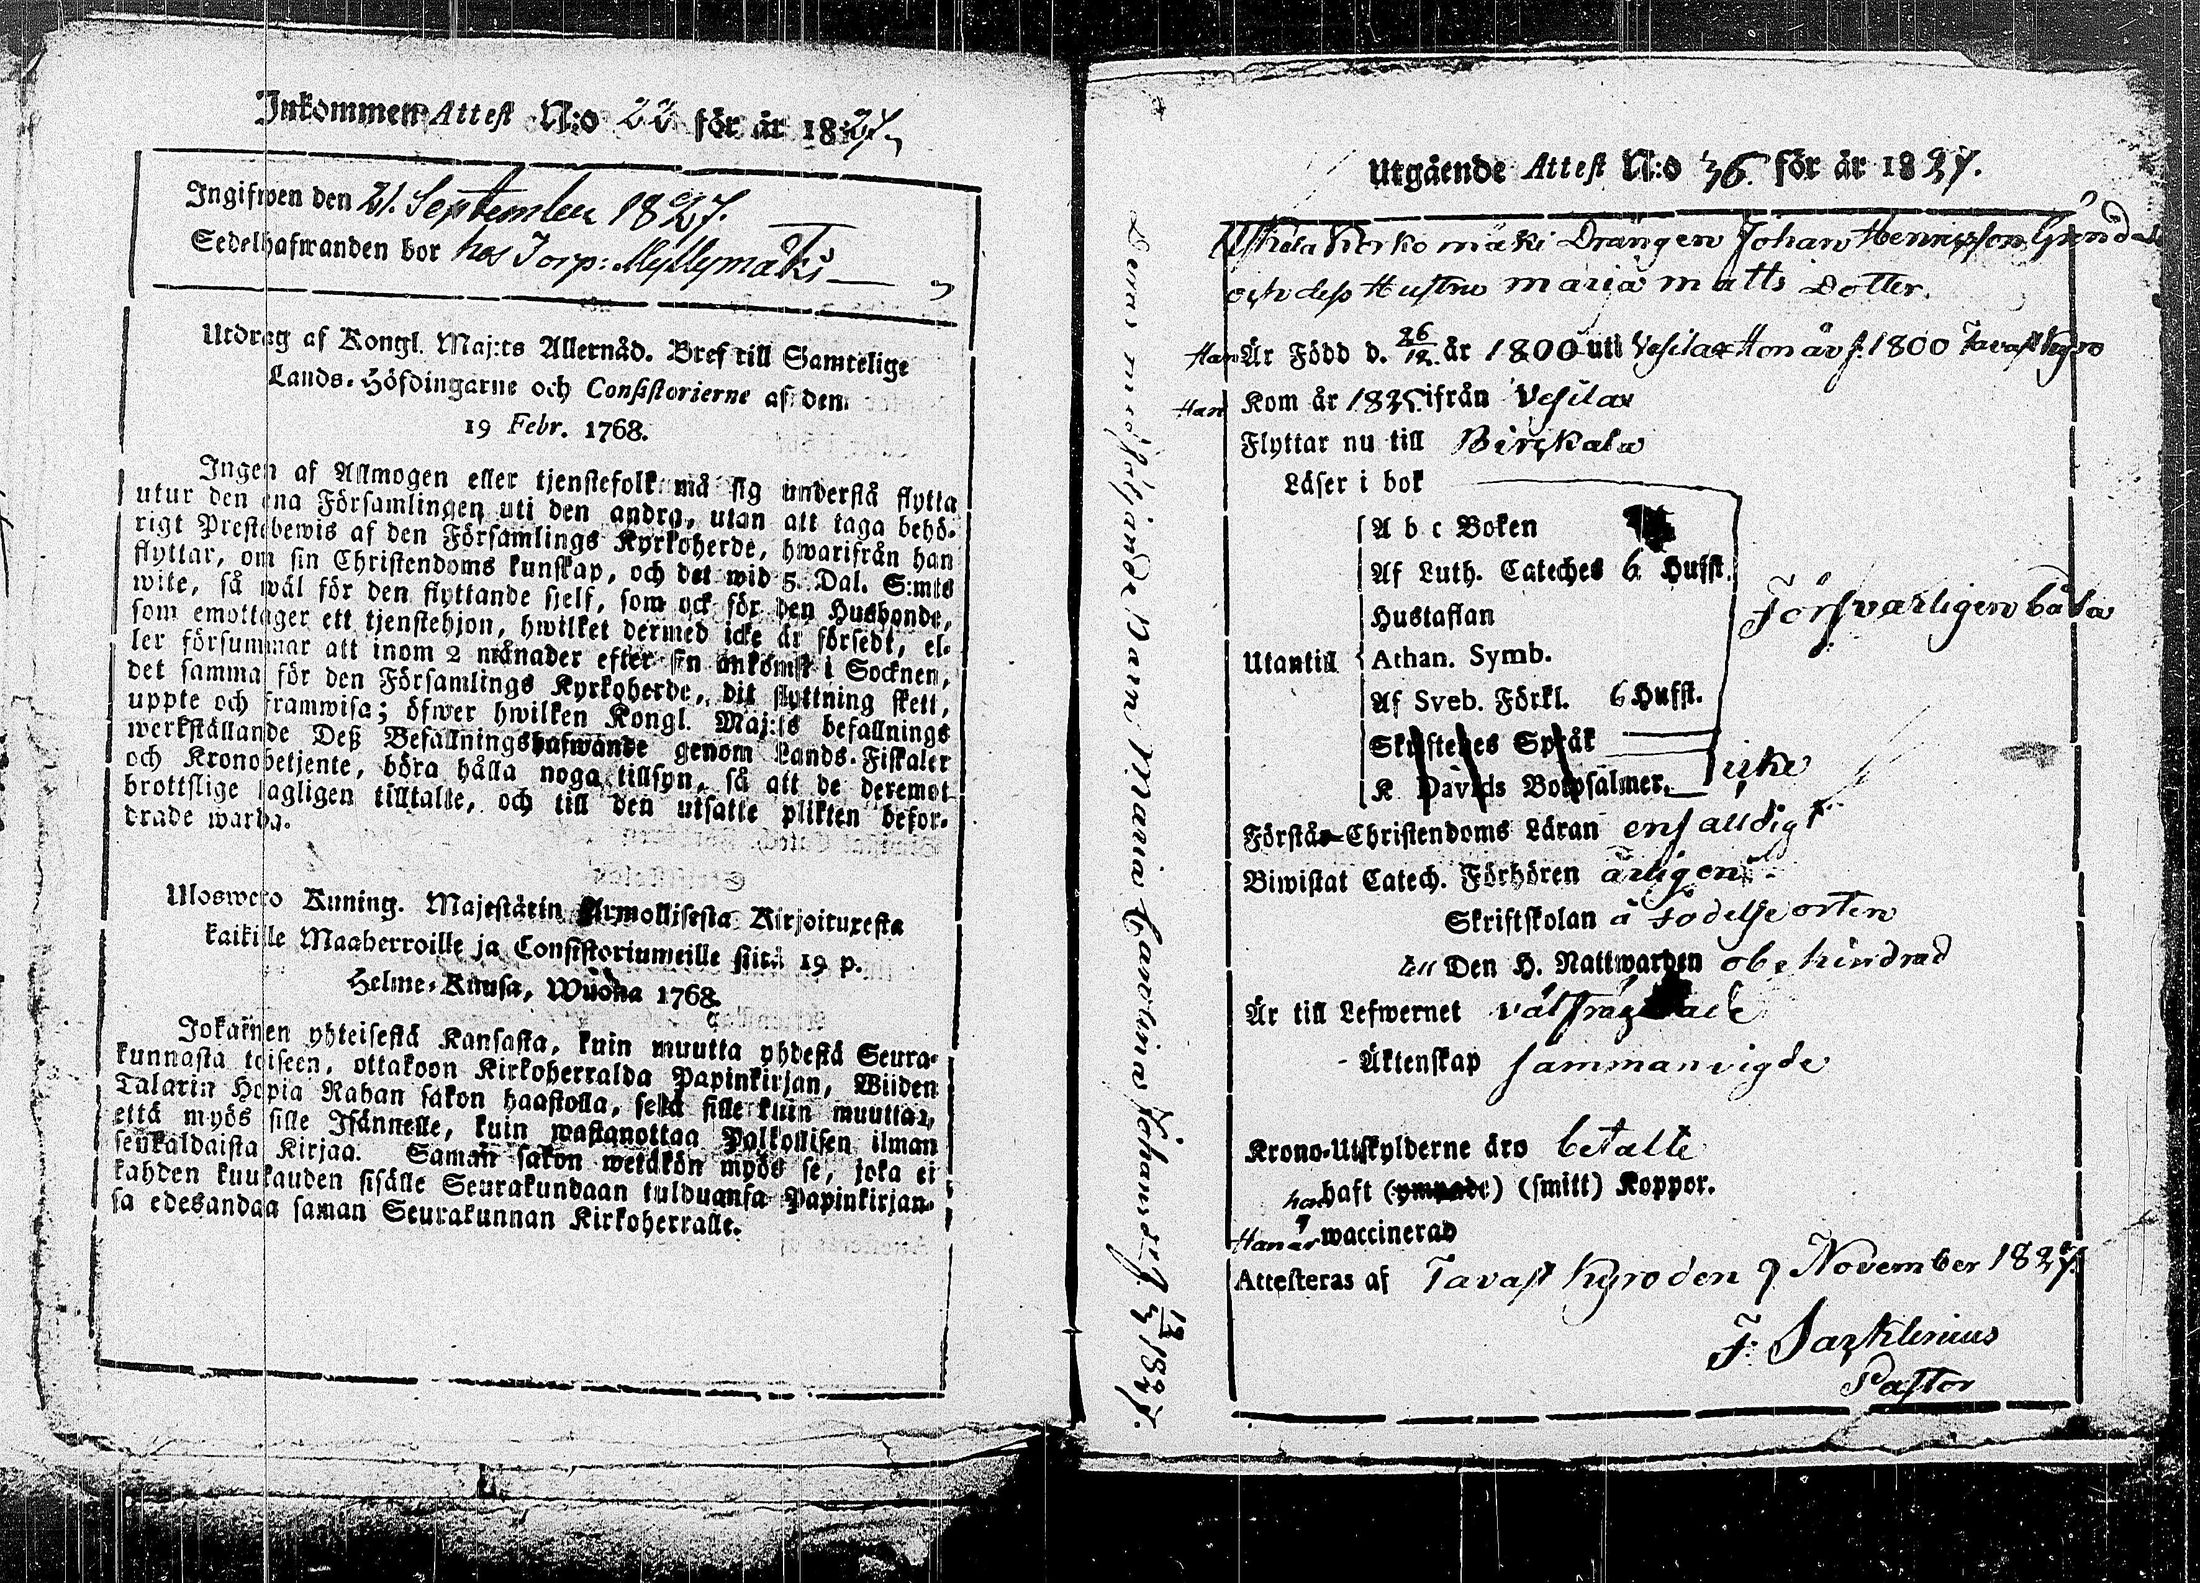 Inkommen Attest N:o 22 för år 1827
Ingifwen den 21. September 1827.
Sedelhafwanden bor hos Torp: Myllymäki
Utdrag af Kongl. Maj:ts Allernåd. Bref till Samtelige
Lands-Höfdingarne och Consistorierne af den
19 Febr. 1768.
Ingen af Allmogen eller tjenstefolk må sig understå flytta
utur den ena Församlingen uti den andra, utan att taga behö-
rigt Prestebewis af den Församlings Kyrkoherde, hwarifrån han
flyttar, om sin Christendoms kunskap, och det wid 5 Dal. S:mts
wite, så wäl för den flyttande sjelf, som ock för den Husbonde,
som emottager ett tjenstehjon, hwilket dermed icke är försedt, el-
ler försummar att inom 2 månader efter sin ankomst i Socknen,
det samma för den Församlings Kyrkoherde, dit flyttning skett,
uppte och framwisa; öfwer hwilken Kongl. Maj:ts befallnings
werkställande Deß Befallningshafwande genom Lands-Fiskaler
och Kronobetjente, böra hålla noga tillsyn, så att de deremot
brottslige lagligen tilltalte, och till den utsatte plikten befor-
drade warda.
Ulosweto Kuning. Majestätin Armollisesta Kirjoituxesta
kaikille Maaherroille ja Consistoriumeille siitä 19 p.
Helme-Kuusa, Wuonna 1768.
Jokainen yhteisestä Kansasta, kuin muutta yhdestä Seura-
kunnasta toiseen, ottakoon Kirkoherralda Papinkirjan, Wiiden
Talarin Hopia Rahan sakon haastolla, sekä sille kuin muuttaa,
että myös sille Isännelle, kuin wastanottaa Palkollisen ilman
senkaldaista Kirjaa. Saman sakon wetäkön myös se, joka ei
kahden kuukauden sisälle Seurakundaan tulduansa Papinkirjan-
sa edesandaa saman Seurakunnan Kirkoherralle.
Utgående Attest N:o 36. för år 1827.
Kerkomäki Drängen Johan Henricsson
och dess Hustru Maria Matts Dotter.
Han Är Född d. 26/12 år 1800 uti Vesilax Hon är f. 1800 Tavastkyro
Han Kom år 1825 ifrån Vesilax
Flyttar nu till Birkala
Läser i bok
A b c Boken
Af Luth. Cateches 6 Hufst.
Hustaflan
Försvarligen båda
Utantill
Athan. Symb.
Af Sveb. Förkl. 6 Hufst.
Skriftenes Språk
K Davids Botpsalmer. icke
Förstår Christendoms Läran enfalldigt
Biwistat Catech. Förhören årligen
Skriftskolan å födelseorten
till Den H. Nattwarden obehindrad
Är till Lefwernet välfrägdade
Äktenskap sammanvigde
Krono-Utskylderne äro betalte
hon haft (ympade) (smitt) Koppor.
Han är waccinerad
Attesteras af Tavastkyro den 9 November 1827.
Pastor
Deras medföljande Barn Maria Carolina Johansd. f. 1827.